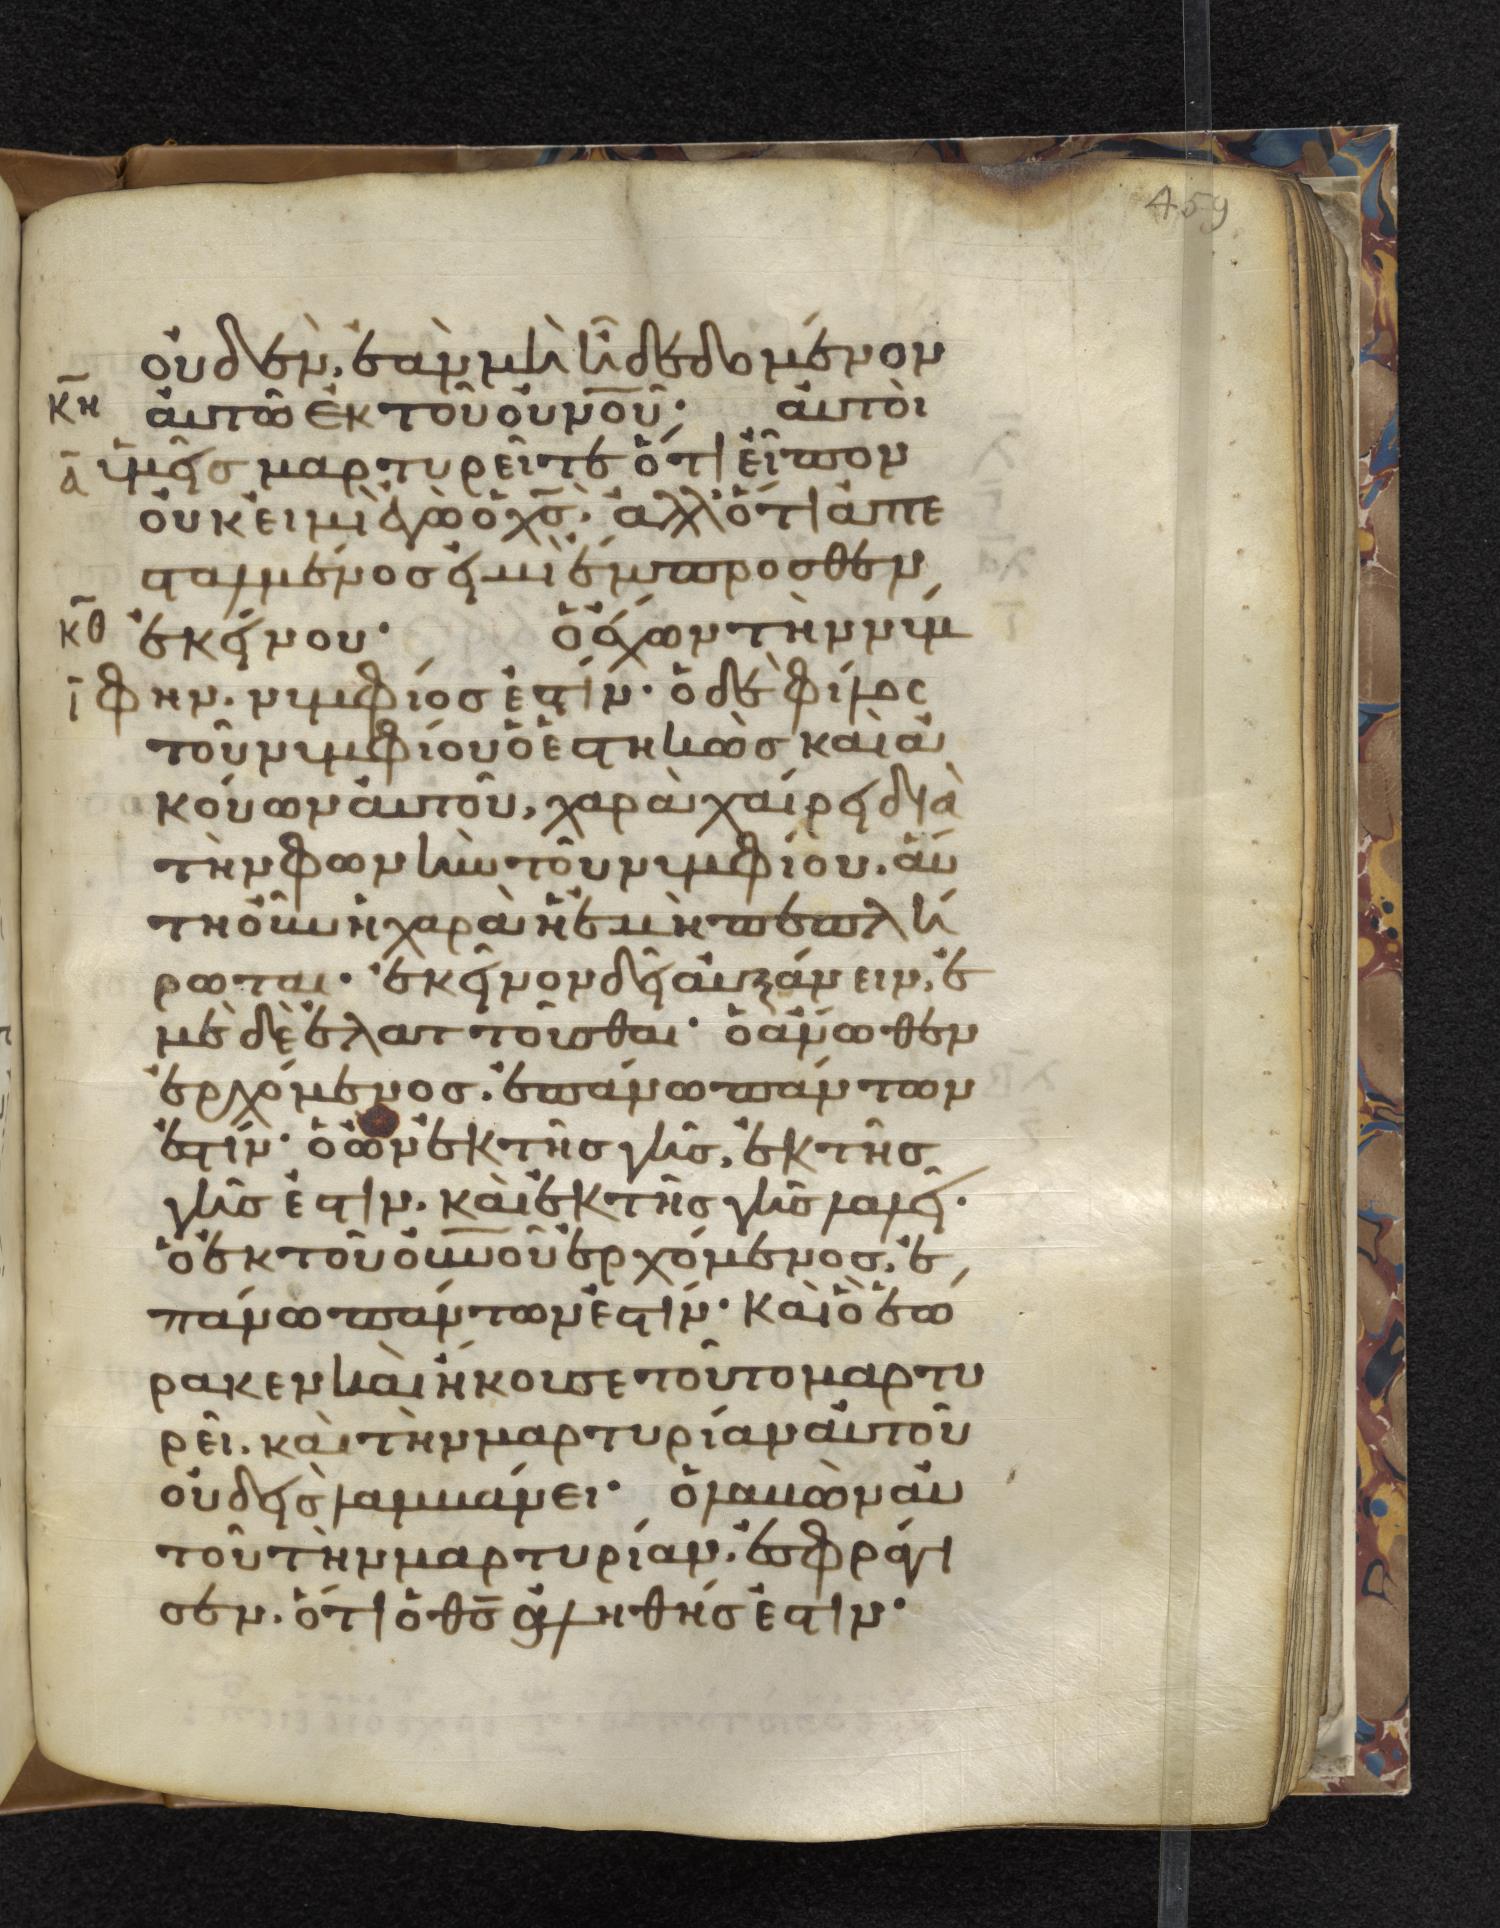 459
οὐδὲν, ἐὰν μὴ ἦ δεδομένον
κη αὐτῶ ἐκ τοῦ οὐνοῦ· αὐτοὶ
α ὑμεῖς μαρτυρεῖτε ὅτι εἶπον
οὐκ εἰμὶ ἐγὼ ὁ χς. ἀλλ ὅτι ἀπε
σταλμένος εἰμὶ ἔμπροσθεν
κθ ἐκείνου· ὁ ἔχων τὴν νύμ
ι φην. νυμφίος ἐστίν· ὁ δὲ φίλος
τοῦ νυμφίου ὁ ἑστηκὼς καὶ ἀ
κούων αὐτοῦ, χαρὰ χαίρει διὰ
τὴν φωνὴν τοῦ νυμφίου. αὕ
τη οὖν ἡ χαρὰ ἡ ἐμὴ πεπλή
ρωται· ἐκεῖνον δεῖ αὐξάνειν, ἐ
μὲ δὲ ἐλαττοῦσθαι· ὁ ἄνωθεν
ἐρχόμενος. ἐπάνω πάντων
ἐστίν· ὁ ὢν ἐκ τῆς γῆς, ἐκ τῆς
γῆς ἐστιν. καὶ ἐκ τῆς γῆς λαλεῖ.
ὁ ἐκ τοῦ οὐνοῦ ἐρχόμενος, ἐ
πάνω πάντων ἐστίν· καὶ ὃ ἑώ
ρακεν καὶ ἤκουσε τοῦτο μαρτυ
ρεῖ. καὶ τὴν μαρτυρίαν αὐτοῦ
οὐδεὶς λαμβάνει· ὁ λαβὼν αὐ
τοῦ τὴν μαρτυρίαν. ἐσφράγι
σεν. ὅτι ὁ θς ἀληθής ἐστιν·